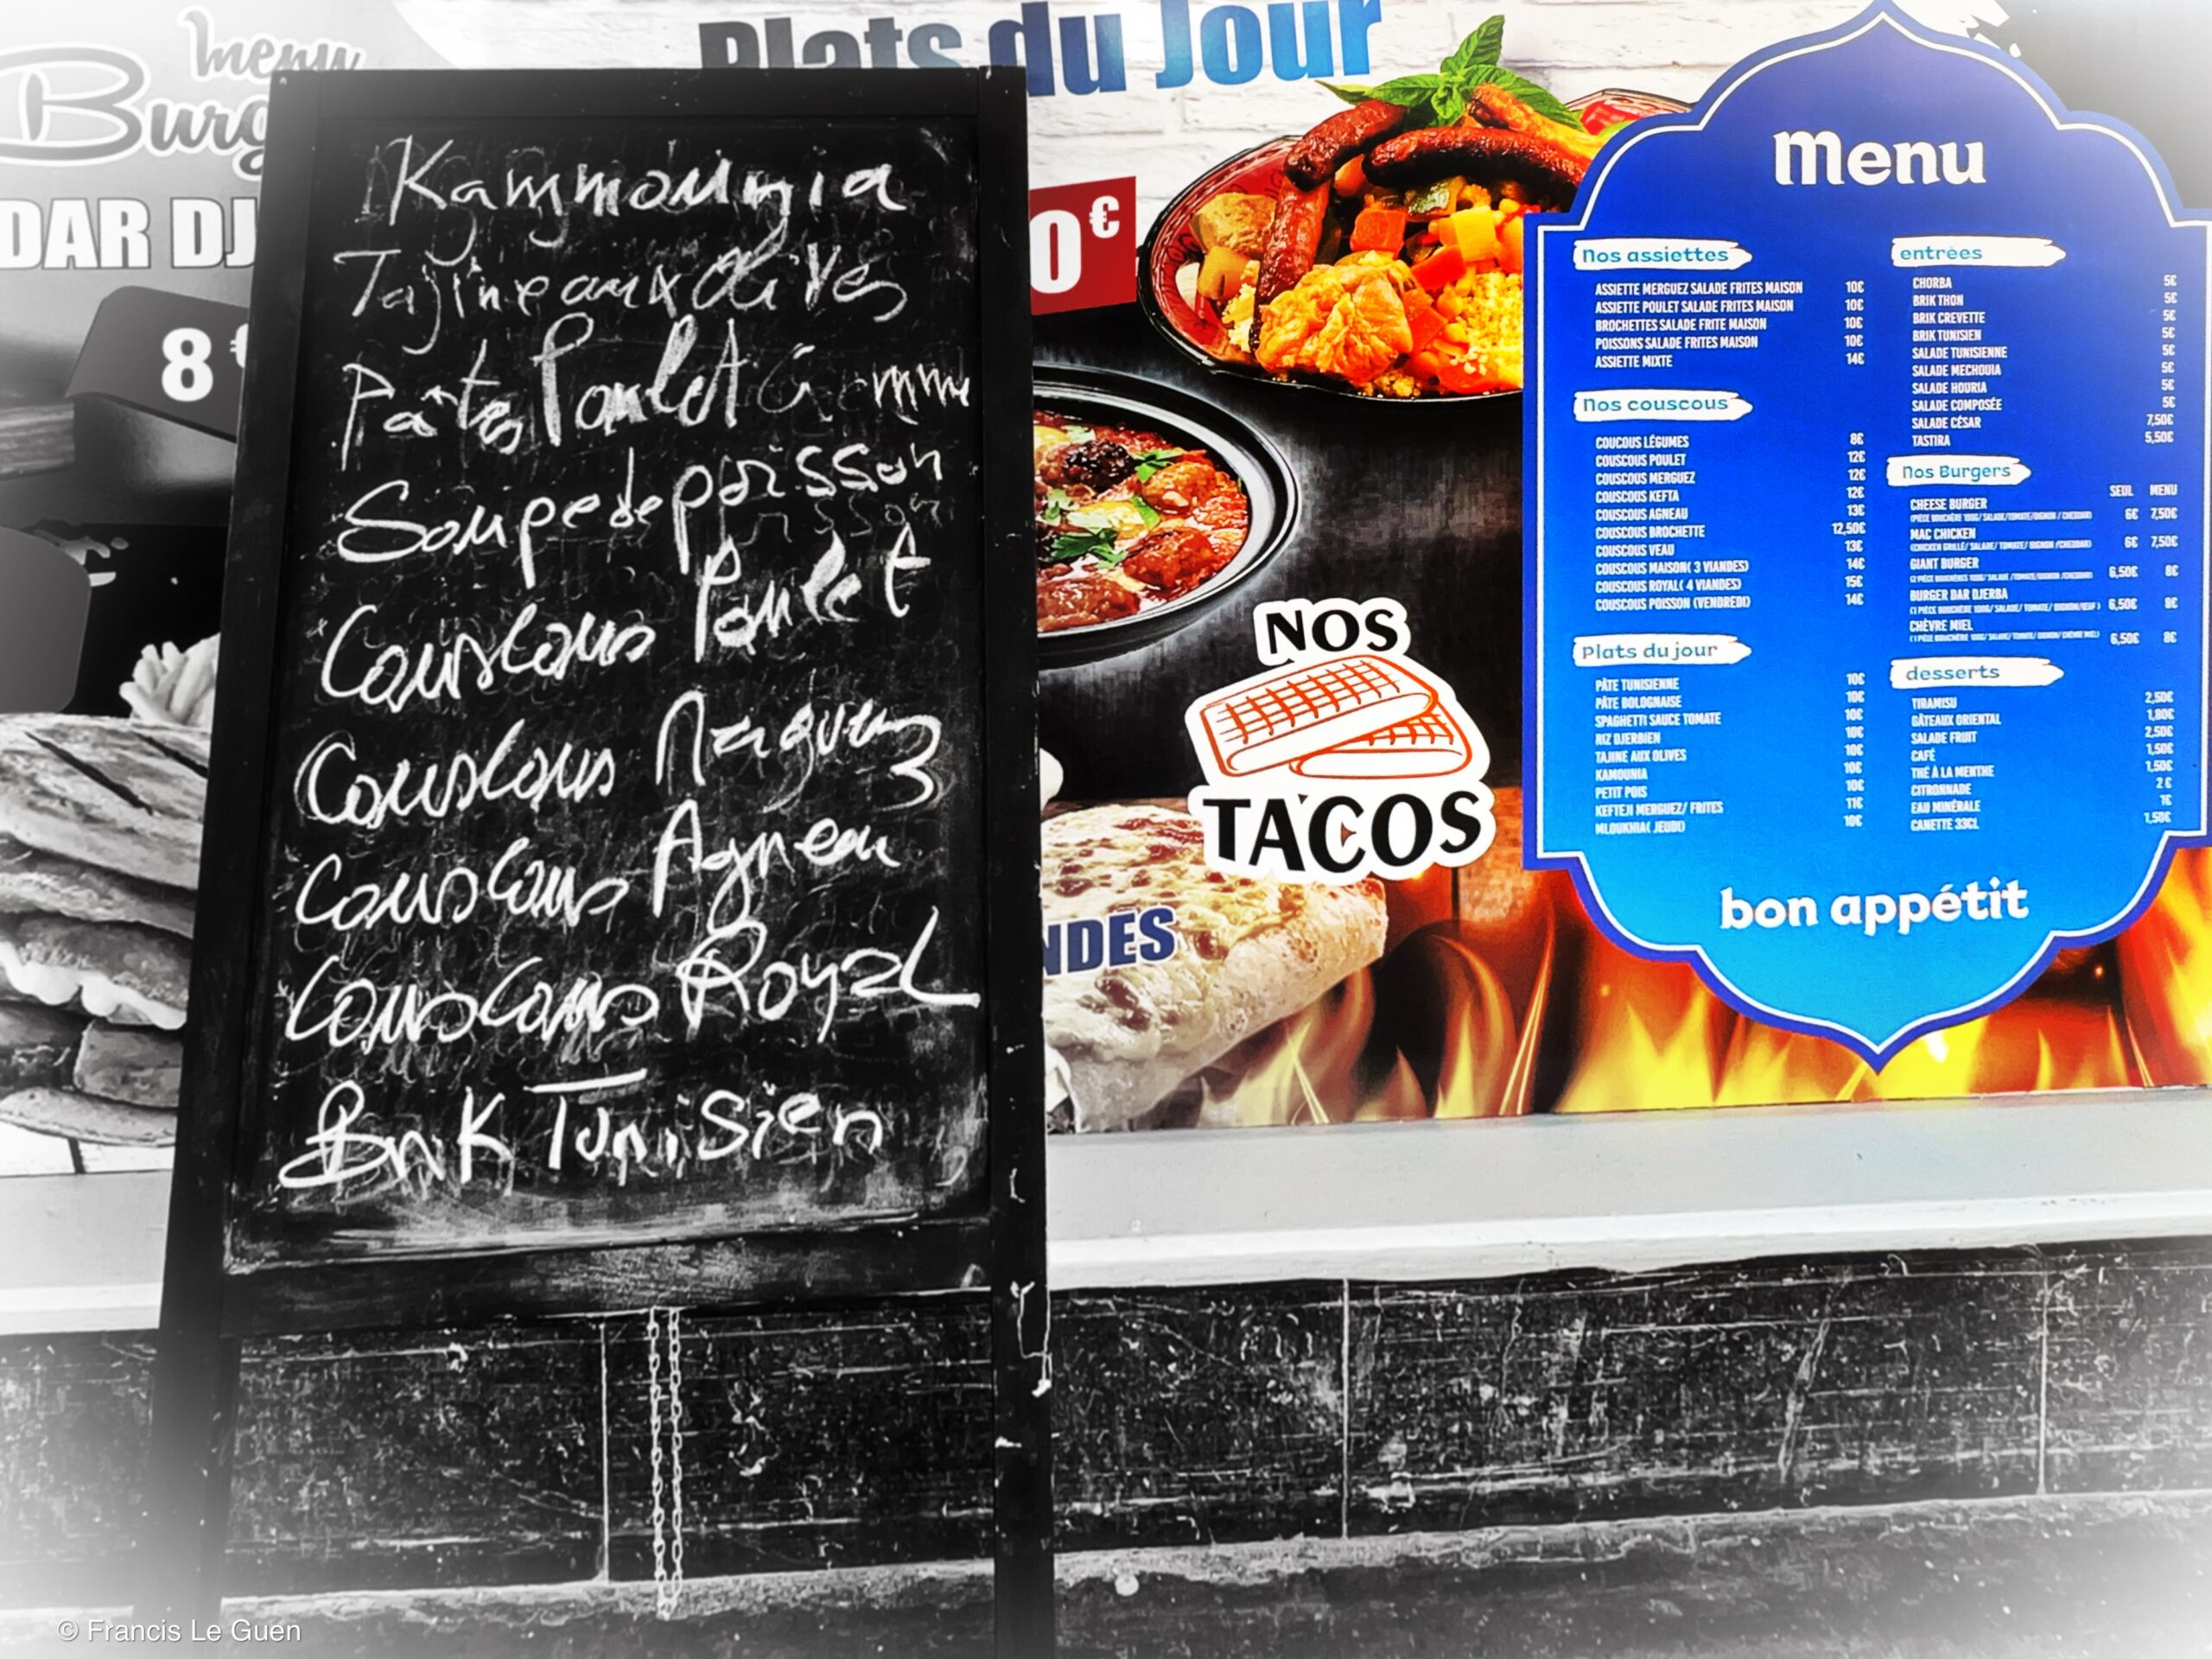 menu
Burg
DAR DJ
8€
Plats du Jour
0€
Kammounia
Tajine aux olives
Pâtes Poulet
Soupe de poisson
Couscous Poulet
Couscous Merguez
Couscous Agneau
Couscous Royal
Brik Tunisien
NOS
TACOS
NDES
Menu
Nos assiettes
ASSIETTE MERGUEZ SALADE FRITES MAISON 10€
ASSIETTE POULET SALADE FRITES MAISON 10€
BROCHETTES SALADE FRITE MAISON 10€
POISSONS SALADE FRITES MAISON 10€
ASSIETTE MIXTE 14€
Nos couscous
COUCOUS LÉGUMES 8€
COUSCOUS POULET 12€
COUSCOUS MERGUEZ 12€
COUSCOUS KEFTA 12€
COUSCOUS AGNEAU 13€
COUSCOUS BROCHETTE 12,50€
COUSCOUS VEAU 13€
COUSCOUS MAISON( 3 VIANDES) 14€
COUSCOUS ROYAL( 4 VIANDES) 15€
COUSCOUS POISSON (VENDREDI) 14€
Plats du jour
PÂTE TUNISIENNE 10€
PÂTE BOLOGNAISE 10€
SPAGHETTI SAUCE TOMATE 10€
RIZ DJERBIEN 10€
TAJINE AUX OLIVES 10€
KAMOUNIA 10€
PETIT POIS 10€
KEFTEJI MERGUEZ/ FRITES 11€
MLOUKHIA( JEUDI) 10€
entrées
CHORBA 5€
BRIK THON 5€
BRIK CREVETTE 5€
BRIK TUNISIEN 5€
SALADE TUNISIENNE 5€
SALADE MECHOUIA 5€
SALADE HOURIA 5€
SALADE COMPOSÉE 5€
SALADE CÉSAR 7,50€
TASTIRA 5,50€
Nos Burgers
SEUL MENU
CHEESE BURGER
(PIÈCE BOUCHÈRE 100G/ SALADE/TOMATE/OIGNON / CHEDDAR) 6€ 7,50€
MAC CHICKEN
(CHICKEN GRILLÉ/ SALADE/ TOMATE/ OIGNON /CHEDDAR) 6€ 7,50€
GIANT BURGER
(2 PIÈCE BOUCHÈRES 100G/ SALADE /TOMATE/OIGNON /CHEDDAR) 6,50€ 8€
BURGER DAR DJERBA
(1 PIÈCE BOUCHÈRE 100G/ SALADE/ TOMATE/ OIGNON/ŒUF ) 6,50€ 8€
CHÈVRE MIEL
(1 PIÈCE BOUCHÈRE 100G/ SALADE/ TOMATE/ OIGNON/ CHÈVRE MIEL) 6,50€ 8€
desserts
TIRAMISU 2,50€
GÂTEAUX ORIENTAL 1,80€
SALADE FRUIT 2,50€
CAFÉ 1,50€
THÉ À LA MENTHE 1,50€
CITRONNADE 2 €
EAU MINÉRALE 1€
CANETTE 33CL 1,50€
bon appétit
© Francis Le Guen